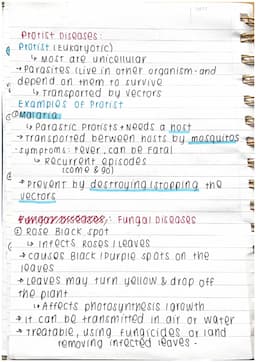 Protist Diseases:
Protist (Eukaryotic)
↳ Most are unicellular
→ Parasites (Live in other organism - and
depend on them to survive
↳ Transported by vectors
Examples of Protist
① Malaria
↳ Parastic Protists + Needs a host
→ Transported between hosts by mosquitos
- symptoms: fever. can be fatal
↳ Recurrent episodes
(come & go)
→ Prevent by destroying/stopping the
vectors
Fungal Diseases: Fungal Diseases
① Rose Black spot
↳ Infects Roses / Leaves
→ causes Black / Purple spots on the
leaves
→ Leaves may turn yellow & drop off
the plant
↳ Affects photosynthesis / growth
→ it can be transmitted in air or water
→ treatable, using fungicides or land
removing infected leaves -